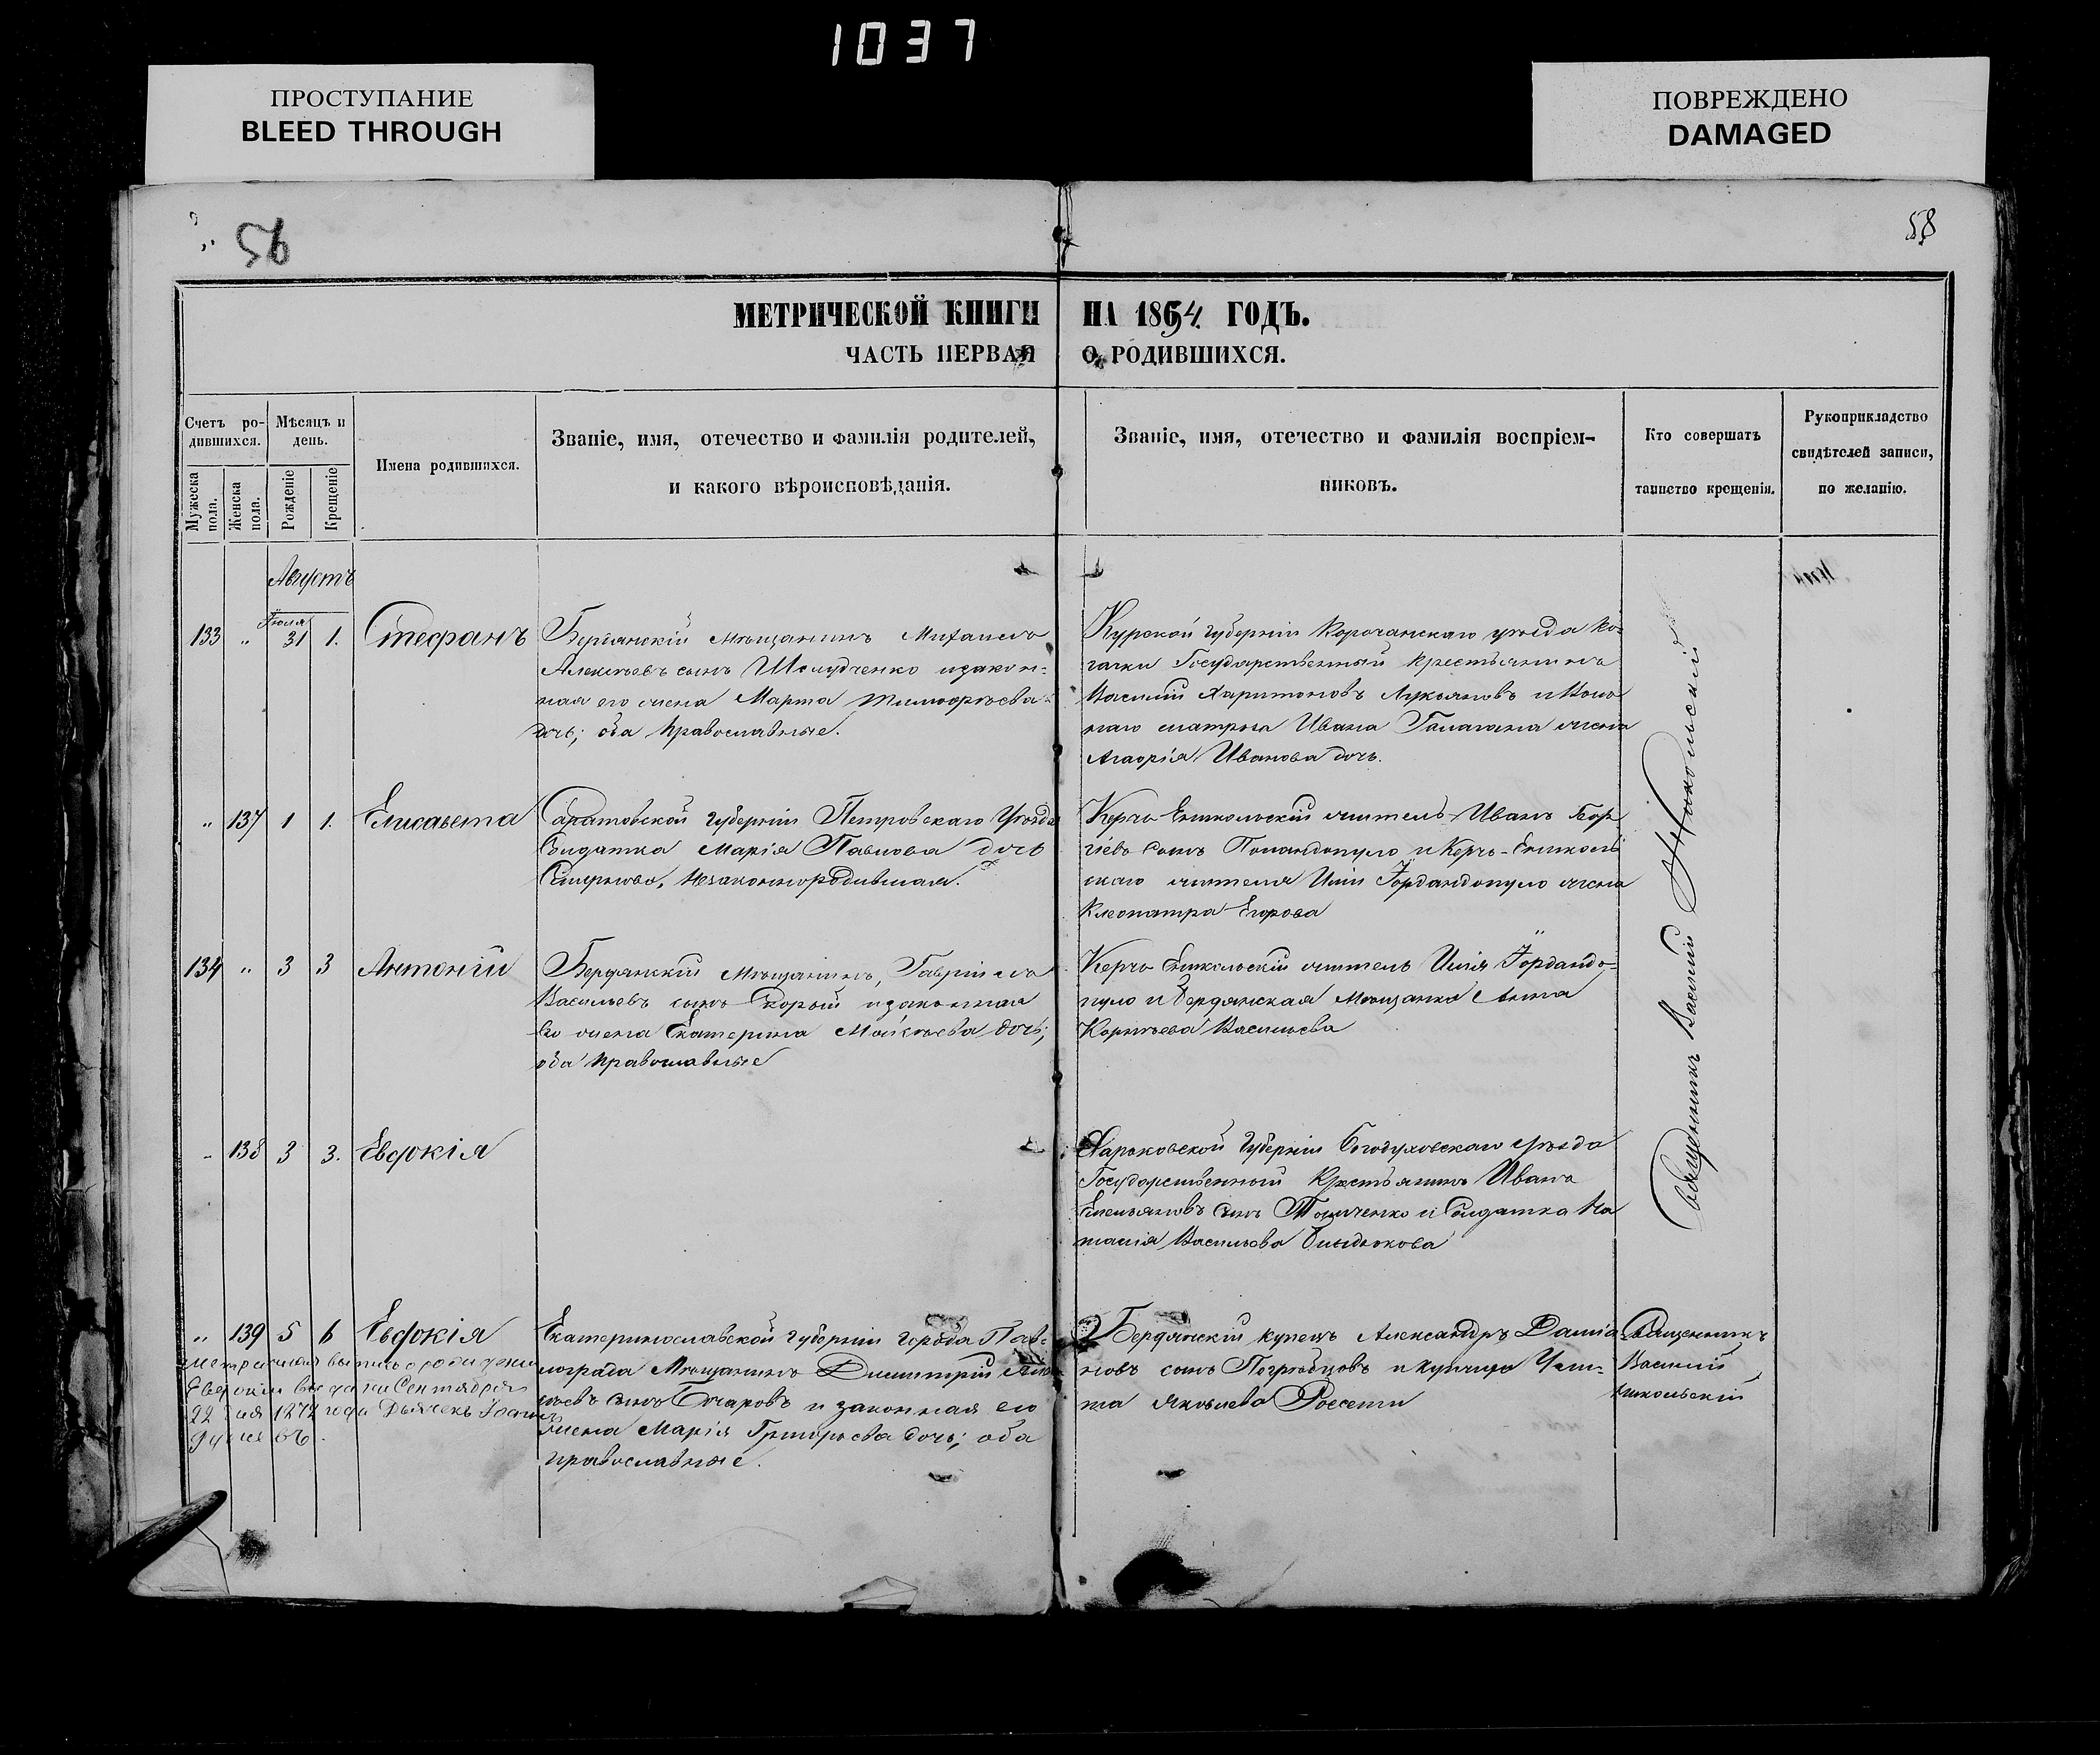 1037
ПРОСТУПАНИЕ
BLEED THROUGH
ПОВРЕЖДЕНО
DAMAGED
56
58
МЕТРИЧЕСКОЙ КНИГИ НА 1854 ГОДЪ.
ЧАСТЬ ПЕРВАЯ О РОДИВШИХСЯ.
Счетъ ро-
дившихся.
Мужеска
пола.
Женска
пола.
Мѣсяцъ и
день.
Рожденіе
Крещеніе
Имена родившихся.
Званіе, имя, отечество и фамилія родителей,
и какого вѣроисповѣданія.
Званіе, имя, отечество и фамилія воспріем-
никовъ.
Кто совершатъ
таинство крещенія.
Рукоприкладство
свидѣтелей записи,
по желанію.
Августъ
Іюля
133 „ 31 1. Стефанъ
Мѣщанинъ Михаилъ
Алексѣевъ сынъ Шелудченко и закон-
ная его жена Марта Тимофѣева
дочь; оба православные.
Курской губерніи Корочанскаго уѣзда
Государственный крестьянинъ
Василій Харитоновъ Лукьяновъ и
матроса Ивана жена
Агафія Иванова дочь.
„ 137 1 1. Елисавета
Саратовской губерніи Петровскаго Уѣзда
Солдатка Марія Павлова дочь
Незаконнородившая.
Керчь Еникольскій житель Иванъ Геор-
гіевъ сынъ Попандопуло и Керчь-Ениколь-
скаго жителя Иліи Іорданdопуло жена
Клеопатра Егорова
134 „ 3 3 Антоній
Бердянскій Мѣщанинъ, Гавріилъ
Васильевъ сынъ и законная
его жена Екатерина дочь;
оба православные
Керчь Еникольскій житель Илія Іордандо-
пуло и Бердянская Мѣщанка Анна
Корнѣева Васильева
„ 138 3 3. Евдокія
Харьковской Губерніи Богодуховскаго уѣзда
Государственный Крестьянинъ Иванъ
Емельяновъ сынъ и Солдатка На
талія Васильева
„ 139 5 6 Евдокія
Екатеринославской губерніи города Пав-
лограда Мѣщанинъ Димитрій
сынъ Бочаровъ и законная его
жена Марія Григорьева дочь; оба
православные.
Бердянскій купецъ Александръ Даміа
новъ сынъ Погрѣбцовъ и купчиха
Яковлева Россети
Священникъ
Василій
Никольскій
Метричная выпись о рожденіи
Евдокіи выдана Сентября
22 дня 1872 года Дьячекъ
Священникъ Василій Никольскій